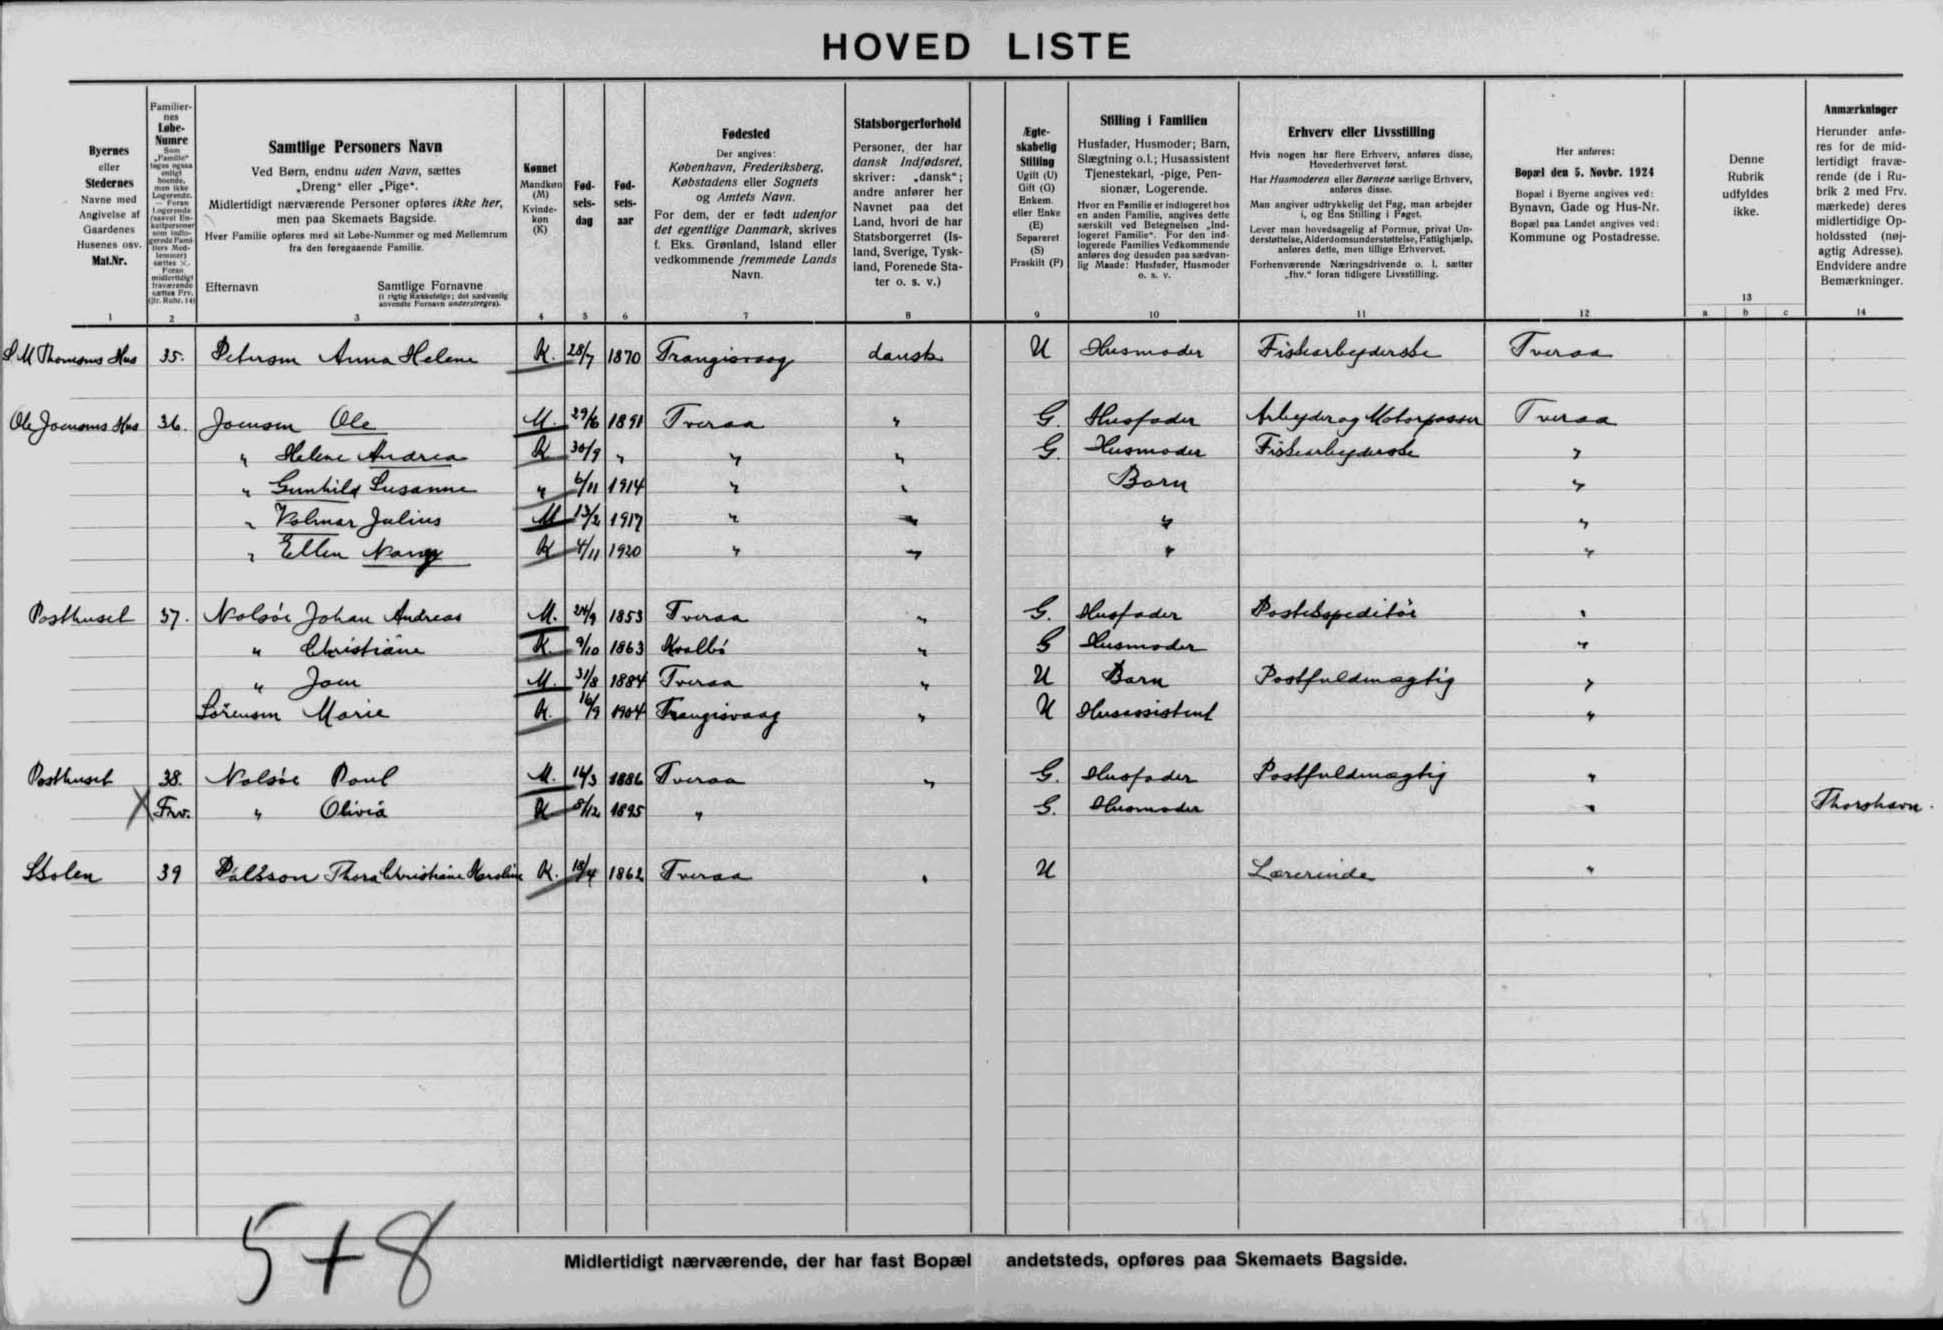 HOVED LISTE
Byernes eller Stedernes Navne med Angivelse af Gaardenes Husenes osv. Mat.Nr.
Familiernes Løbe-Numre
Samtlige Personers Navn
Ved Børn, endnu uden Navn, sættes „Dreng“ eller „Pige“.
Midlertidigt nærværende Personer opføres ikke her, men paa Skemaets Bagside.
Hver Familie opføres med sit Løbe-Nummer og med Mellemrum fra den foregaaende Familie.
Efternavn Samtlige Fornavne
(i rigtig Rækkefølge; det sædvanlig anvendte Fornavn understreges).
Kønnet Mandkøn (M) Kvindekøn (K)
Fødselsdag
Fødselsaar
Fødested
Der angives:
København, Frederiksberg, Købstadens eller Sognets og Amtets Navn.
For dem, der er født udenfor det egentlige Danmark, skrives f. Eks. Grønland, Island eller vedkommende fremmede Lands Navn.
Statsborgerforhold
Personer, der har dansk Indfødsret, skriver: „dansk“; andre anfører her Navnet paa det Land, hvori de har Statsborgerret (Island, Sverige, Tyskland, Forenede Stater o. s. v.)
Ægteskabelig Stilling Ugift (U) Gift (G) Enkem. eller Enke (E) Separeret (S) Fraskilt (F)
Stilling i Familien
Husfader, Husmoder; Barn, Slægtning o.l.; Husassistent Tjenestekarl, -pige, Pensionær, Logerende.
Hvor en Familie er indlogeret hos en anden Familie, angives dette særskilt ved Betegnelsen „Indlogeret Familie“. For den indlogerede Families Vedkommende anføres dog desuden paa sædvanlig Maade: Husfader, Husmoder o. s. v.
Erhverv eller Livsstilling
Hvis nogen har flere Erhverv, anføres disse, Hovederhvervet først.
Har Husmoderen eller Børnene særlige Erhverv, anføres disse.
Man angiver udtrykkelig det Fag, man arbejder i, og Ens Stilling i Faget.
Lever man hovedsagelig af Formue, privat Understøttelse, Alderdomsunderstøttelse, Fattighjælp, anføres dette, men tillige Erhvervet.
Forhenværende Næringsdrivende o. l. sætter „fhv.“ foran tidligere Livsstilling.
Her anføres:
Bopæl den 5. Novbr. 1924
Bopæl i Byerne angives ved: Bynavn, Gade og Hus-Nr.
Bopæl paa Landet angives ved: Kommune og Postadresse.
Denne Rubrik udfyldes ikke.
Anmærkninger
Herunder anføres for de midlertidigt fraværende (de i Rubrik 2 med Frv. mærkede) deres midlertidige Opholdssted (nøjagtig Adresse). Endvidere andre Bemærkninger.
1 2 3 4 5 6 7 8 9 10 11 12 13 a b c 14
Thomsens Hus 35. Petersen Anna Helene K. 28/7 1870 Trangisvaag dansk U Husmoder Fiskearbejderske Tveraa
Ole Joensens Hus 36. Joensen Ole M. 29/6 1891 Tveraa " G. Husfader Arbejder og Motorpasser Tveraa
" Helene Andrea K 30/9 " " " G. Husmoder Fiskearbejderske "
" Gunhild Susanne " 6/11 1914 " " Barn "
" Volmar Julius M 13/2 1917 " " " "
" Ellen Nanny K 4/11 1920 " " " "
Posthuset 37. Nolsøe Johan Andreas M. 24/9 1853 Tveraa " G. Husfader Postekspeditør "
" Christiane K. 9/10 1863 Kvalbø " G Husmoder "
" Joen M. 31/8 1884 Tveraa " U Barn Postfuldmægtig "
Sørensen Marie K. 16/9 1904 Trangisvaag " U Husassistent "
Posthuset 38. Nolsøe Poul M. 14/3 1886 Tveraa " G. Husfader Postfuldmægtig "
X Frv. " Olivia K 8/12 1895 " G. Husmoder " Thorshavn.
Skolen 39 Pálsson Thora Christiane Karoline K. 18/4 1862 Tveraa " U Lærerinde "
5+8
Midlertidigt nærværende, der har fast Bopæl andetsteds, opføres paa Skemaets Bagside.